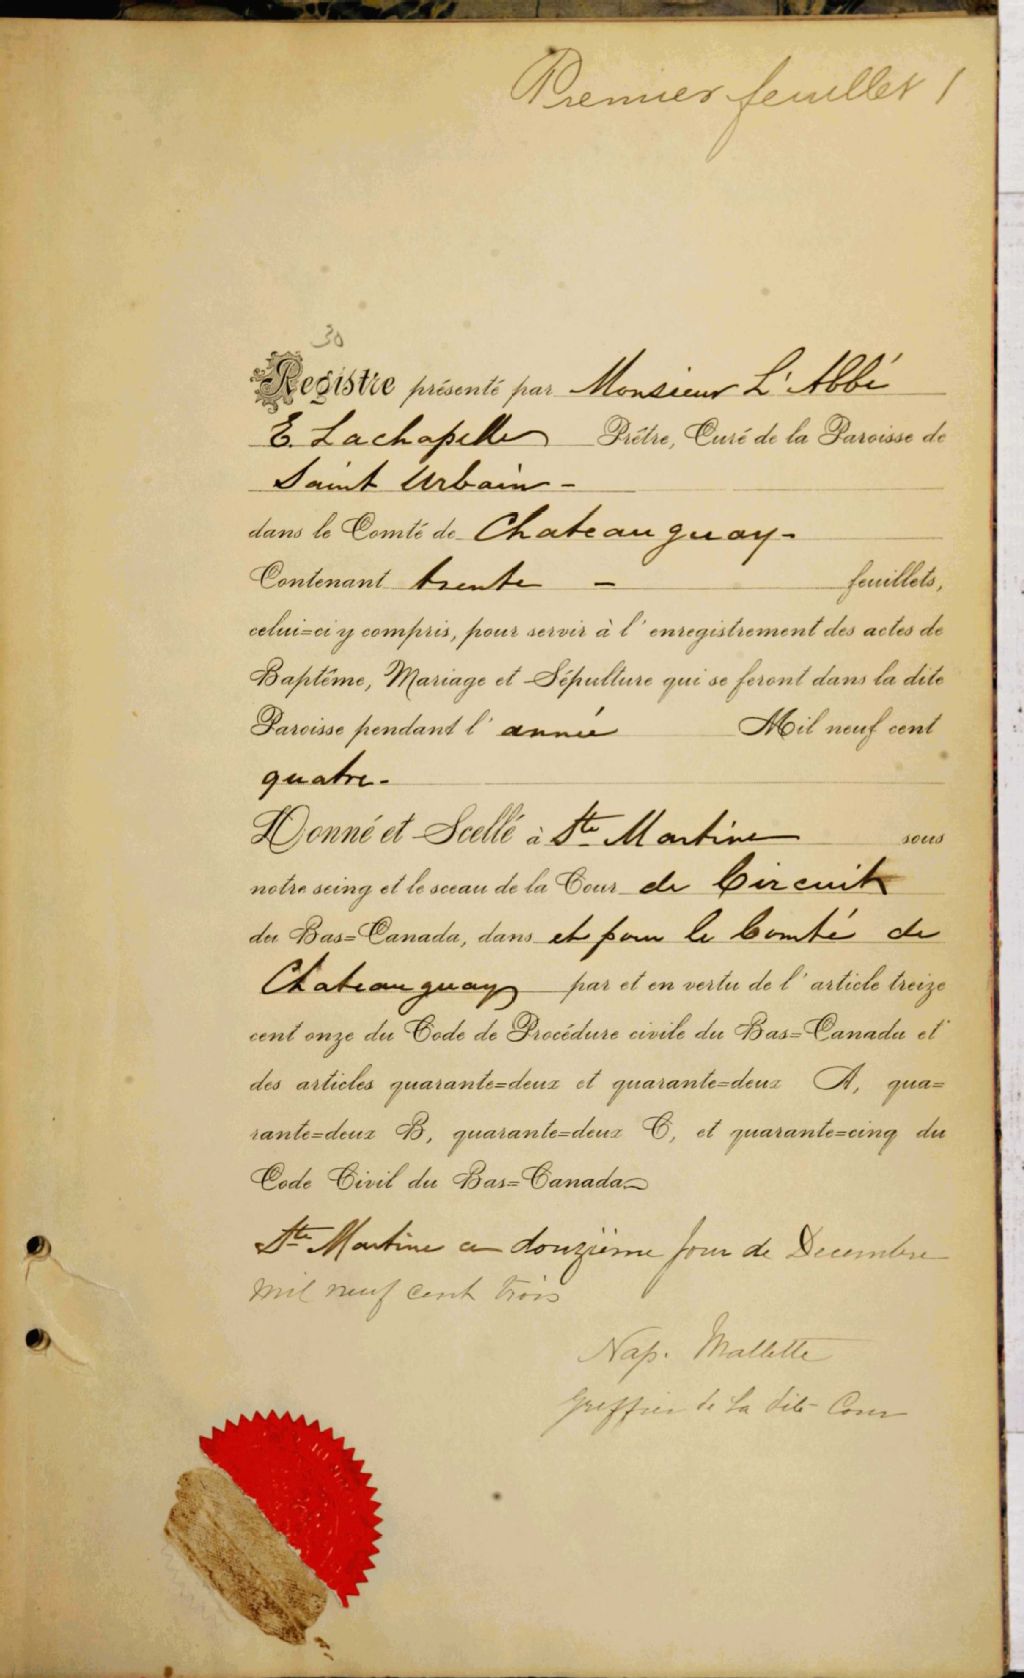 Premier feuillet 1
30
Registre présenté par Monsieur L'Abbé
E. Lachapelle Prêtre, Curé de la Paroisse de
Saint Urbain -
dans le Comté de Chateauguay -
Contenant trente - feuillets,
celui=ci y compris, pour servir à l'enregistrement des actes de
Baptême, Mariage et Sépulture qui se feront dans la dite
Paroisse pendant l'année Mil neuf cent
quatre -
Donné et Scellé à Ste Martine sous
notre seing et le sceau de la Cour de Circuit
du Bas=Canada, dans et pour le Comté de
Chateauguay par et en vertu de l'article treize
cent onze du Code de Procédure civile du Bas=Canada et
des articles quarante=deux et quarante=deux A, qua=
rante=deux B, quarante=deux C, et quarante=cinq du
Code Civil du Bas=Canada
Ste Martine ce douzième jour de Decembre
mil neuf cent trois
Nap. Mallette
greffier de la dite Cour